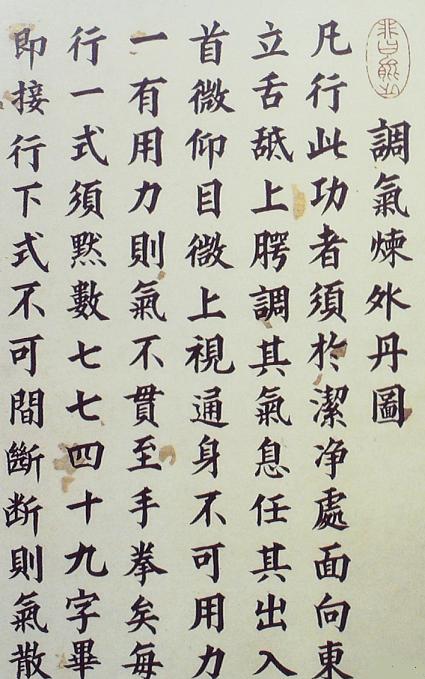 調氣煉外丹圖
凡行此功者須於潔净處面向東
立舌舐上腭調其氣息任其出入
首微仰目微上視通身不可用力
一有用力則氣不貫至手拳矣每
行一式須默數七七四十九字畢
即接行下式不可間斷断則氣散